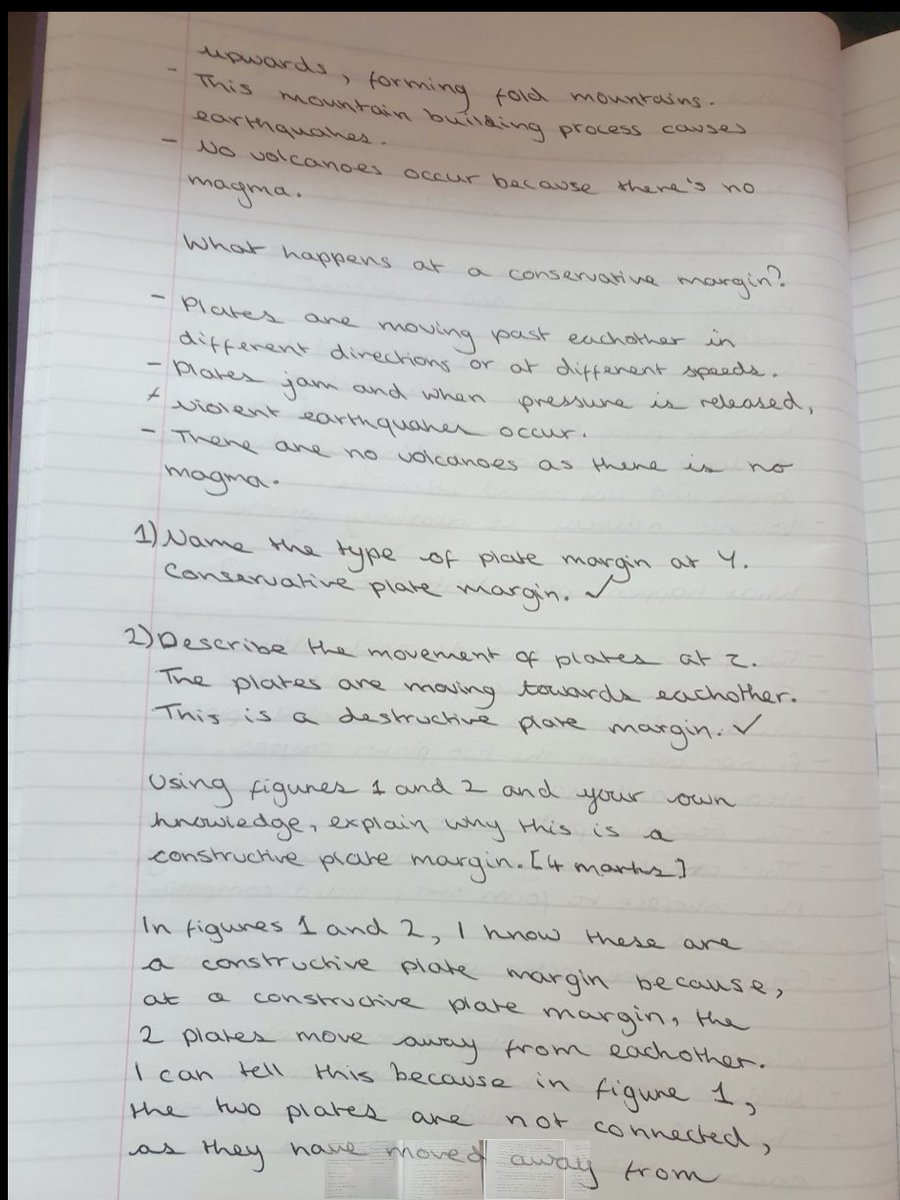 upwards, forming fold mountains.
- This mountain building process causes
earthquakes.
- No volcanoes occur because there's no
magma.
What happens at a conservative margin?
- Plates are moving past eachother in
different directions or at different speeds.
- Plates jam and when pressure is released,
violent earthquakes occur.
- There are no volcanoes as there is no
magma.
1) Name the type of plate margin at Y.
Conservative plate margin. ✓
2) Describe the movement of plates at Z.
The plates are moving towards eachother.
This is a destructive plate margin. ✓
Using figures 1 and 2 and your own
knowledge, explain why this is a
constructive plate margin. [4 marks]
In figures 1 and 2, I know these are
a constructive plate margin because,
at a constructive plate margin, the
2 plates move away from eachother.
I can tell this because in figure 1,
the two plates are not connected,
as they have moved away from